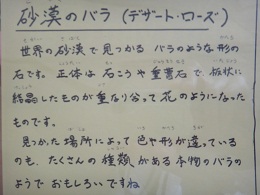 砂漠のバラ (デザート・ローズ)
世界の砂漠で見つかる バラのような形の
石です。正体は 石こうや 重晶石 で 板状に
結晶したものが 重なり合って 花のようになった
ものです。
見つかった 場所によって 色や形が 違っている
のも、たくさんの 種類 がある 本物のバラの
ようで おもしろいですね